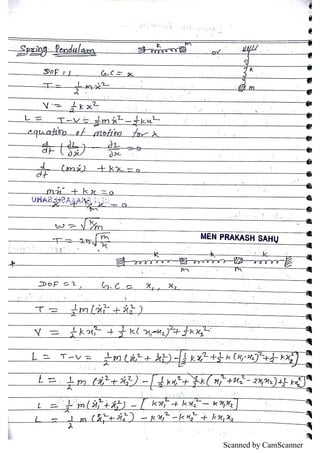 Spring Pendulam
k m or k m
DOF = 1 G.C = x
T = 1/2 mẋ²
V = 1/2 kx²
L = T-V = 1/2 mẋ² - 1/2 kx²
equation of motion for x
d/dt (∂L/∂ẋ) - ∂L/∂x = 0
d/dt (mẋ) + kx = 0
mẍ + kx = 0
ẍ + k/m x = 0
ω = √k/m
T = 2π √m/k
MEN PRAKASH SAHU
k k k
m m
DOF = 2, G.C = x₁, x₂
T = 1/2 m(ẋ₁² + ẋ₂²)
V = 1/2 kx₁² + 1/2 k(x₁-x₂)² + 1/2 kx₂²
L = T-V = 1/2 m(ẋ₁² + ẋ₂²) - [1/2 kx₁² + 1/2 k(x₁-x₂)² + 1/2 kx₂²]
L = 1/2 m(ẋ₁² + ẋ₂²) - [1/2 kx₁² + 1/2 k(x₁² + x₂² - 2x₁x₂) + 1/2 kx₂²]
L = 1/2 m(ẋ₁² + ẋ₂²) - [kx₁² + kx₂² - kx₁x₂]
L = 1/2 m(ẋ₁² + ẋ₂²) - kx₁² - kx₂² + kx₁x₂
Scanned by CamScanner